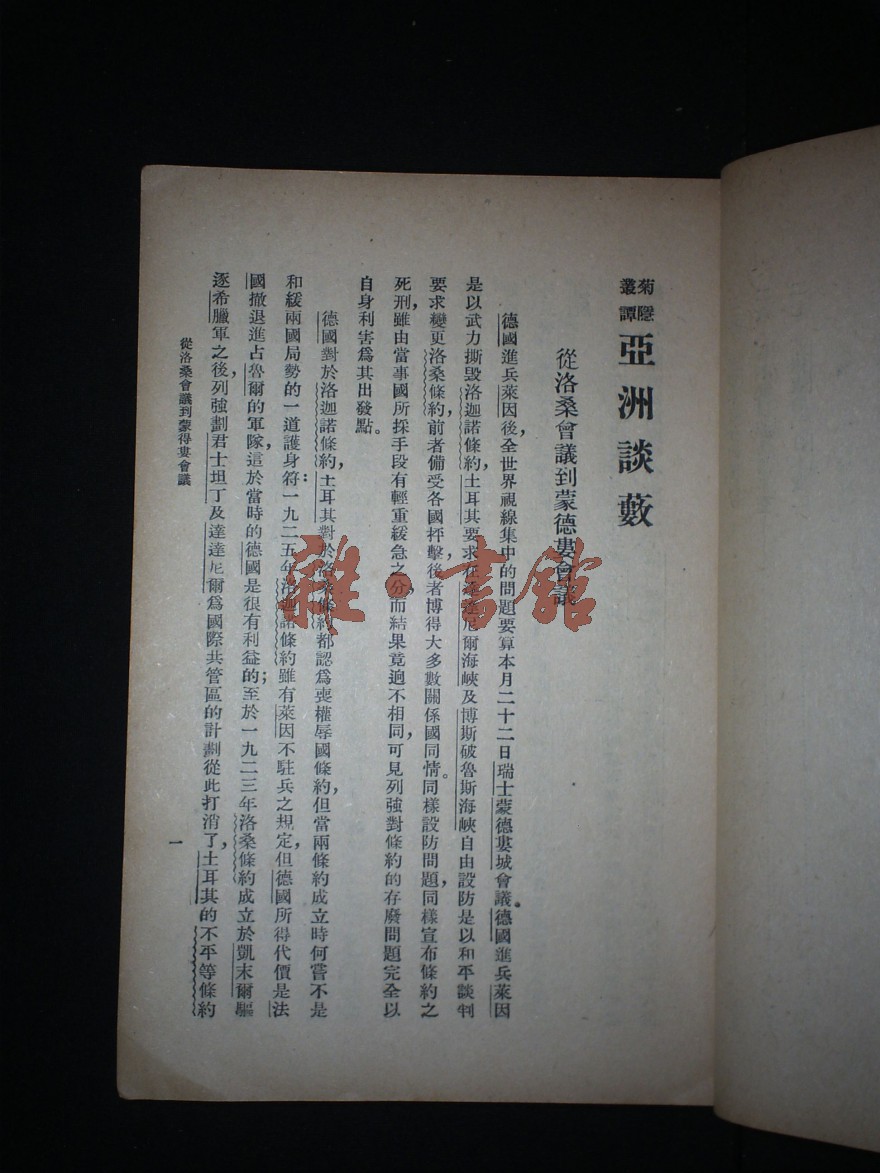 菊隱
叢譚
亞洲談藪
從洛桑會議到蒙德婁會議
德國進兵萊因後，全世界視線集中的問題要算本月二十二日瑞士蒙德婁城會議。德國進兵萊因
是以武力撕毀洛迦諾條約，土耳其要求在達達尼爾海峽及博斯破魯斯海峽自由設防是以和平談判
要求變更洛桑條約，前者備受各國抨擊，後者博得大多數關係國同情。同樣設防問題，同樣宣布條約之
死刑，雖由當事國所採手段有輕重緩急之分，而結果竟逈不相同，可見列強對條約的存廢問題完全以
自身利害為其出發點。
德國對於洛迦諾條約，土耳其對於洛桑條約都認為喪權辱國條約，但當兩條約成立時何嘗不是
和緩兩國局勢的一道護身符：一九二五年洛迦諾條約雖有萊因不駐兵之規定，但德國所得代價是法
國撤退進占魯爾的軍隊，這於當時的德國是很有利益的；至於一九二三年洛桑條約成立於凱末爾驅
逐希臘軍之後，列強劃君士坦丁及達達尼爾為國際共管區的計劃從此打消了，土耳其的不平等條約
從洛桑會議到蒙得婁會議
一
雜·書館